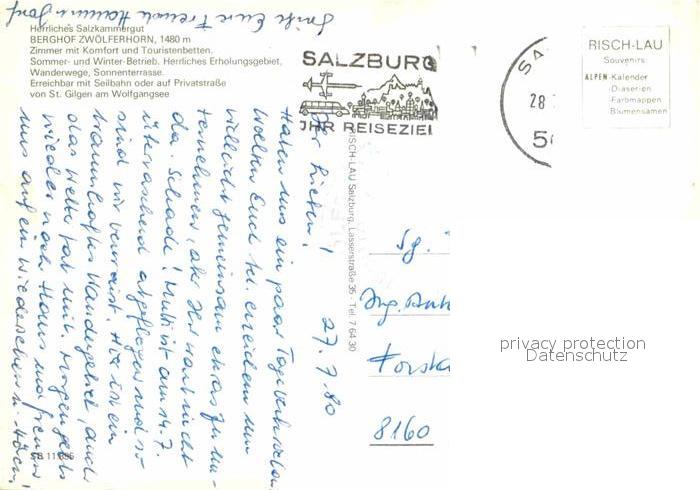 Herrliches Salzkammergut
BERGHOF ZWÖLFERHORN, 1480 m
Zimmer mit Komfort und Touristenbetten.
Sommer- und Winter-Betrieb. Herrliches Erholungsgebiet,
Wanderwege, Sonnenterrasse.
Erreichbar mit Seilbahn oder auf Privatstraße
von St. Gilgen am Wolfgangsee
SALZBURG
IHR REISEZIEL
SA
28
50
RISCH-LAU
Souvenirs
ALPEN-Kalender
Diaserien
Farbmappen
Blumensamen
RISCH-LAU Salzburg, Lasserstraße 35 - Tel. 7 64 30
27.7.80
Ihr Lieben!
Haben uns ein paar Tage
wollten Euch tel. erreichen um
vielleicht gemeinsam etwas zu un-
ternehmen, aber Ihr wart nicht
da. Schade! Mutti ist am 14.7.
überraschend abgeflogen und so
sind wir verreist. Hier ist ein
traumhaftes Wandergebiet, auch
das Wetter hat mit. Morgen geht's
wieder nach Haus und freuen
uns auf ein Wiedersehen
Eure Freunde
Fg.
Ing.
Forsta
8160
SB 11
privacy protection
Datenschutz